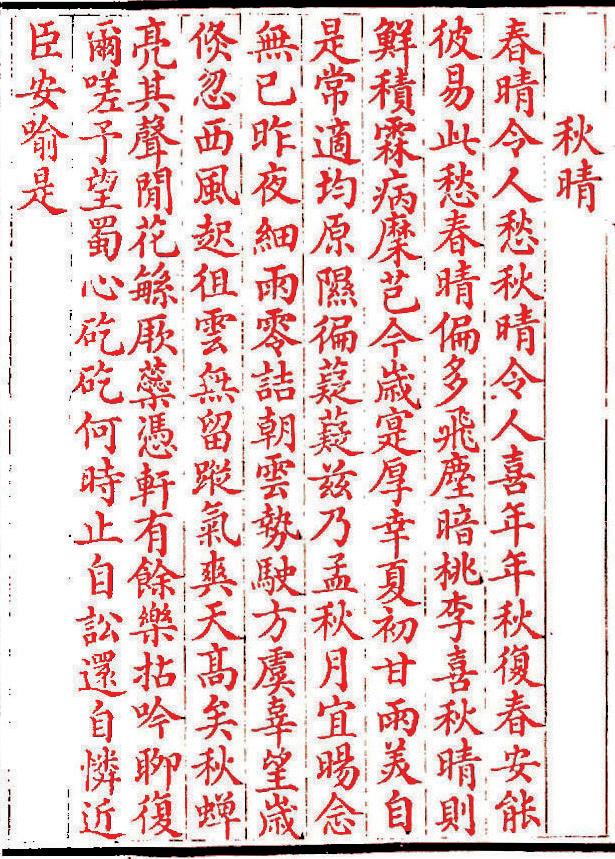 秋晴
春晴令人愁秋晴令人喜年年秋復春安能
彼易此愁春晴偏多飛塵暗桃李喜秋晴則
鮮積霖病穈芑今歲寔厚幸夏初甘雨美自
是常適均原隰徧薿薿兹乃孟秋月宜暘念
無已昨夜細雨零詰朝雲勢駛方虞辜望歲
倐忽西風起徂雲無留蹤氣爽天髙矣秋蟬
亮其聲閒花緐厥蘂憑軒有餘樂拈吟聊復
爾嗟予望蜀心矻矻何時止自訟還自憐近
臣安喻是